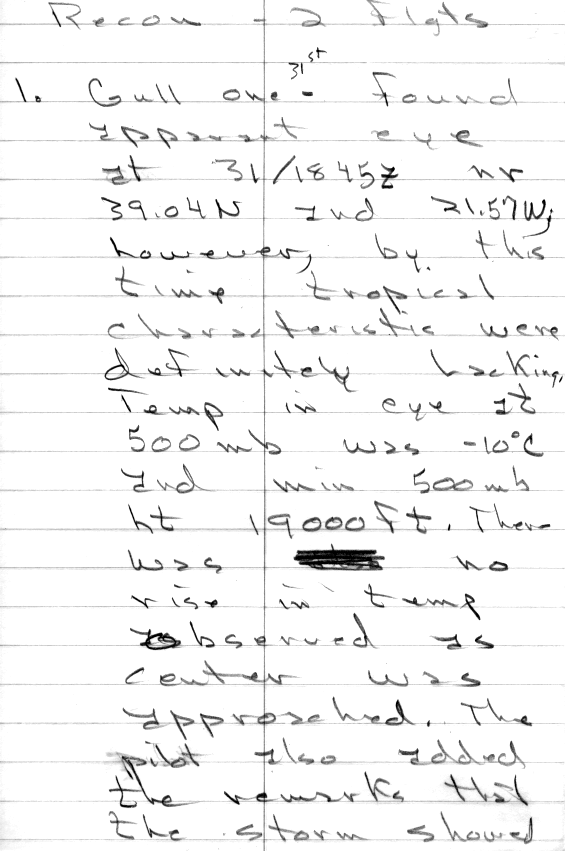 Recon - 2 Flgts
31st
1. Gull one - Found
apparent eye
at 31/1845z nr
39.04N and 21.57W;
however, by this
time tropical
characteristic were
definitely lacking.
Temp in eye at
500mb was -10°C
and min 500mb
ht 19000ft. There
was no
rise in temp
observed as
center was
approached. The
pilot also added
the remarks that
the storm showed